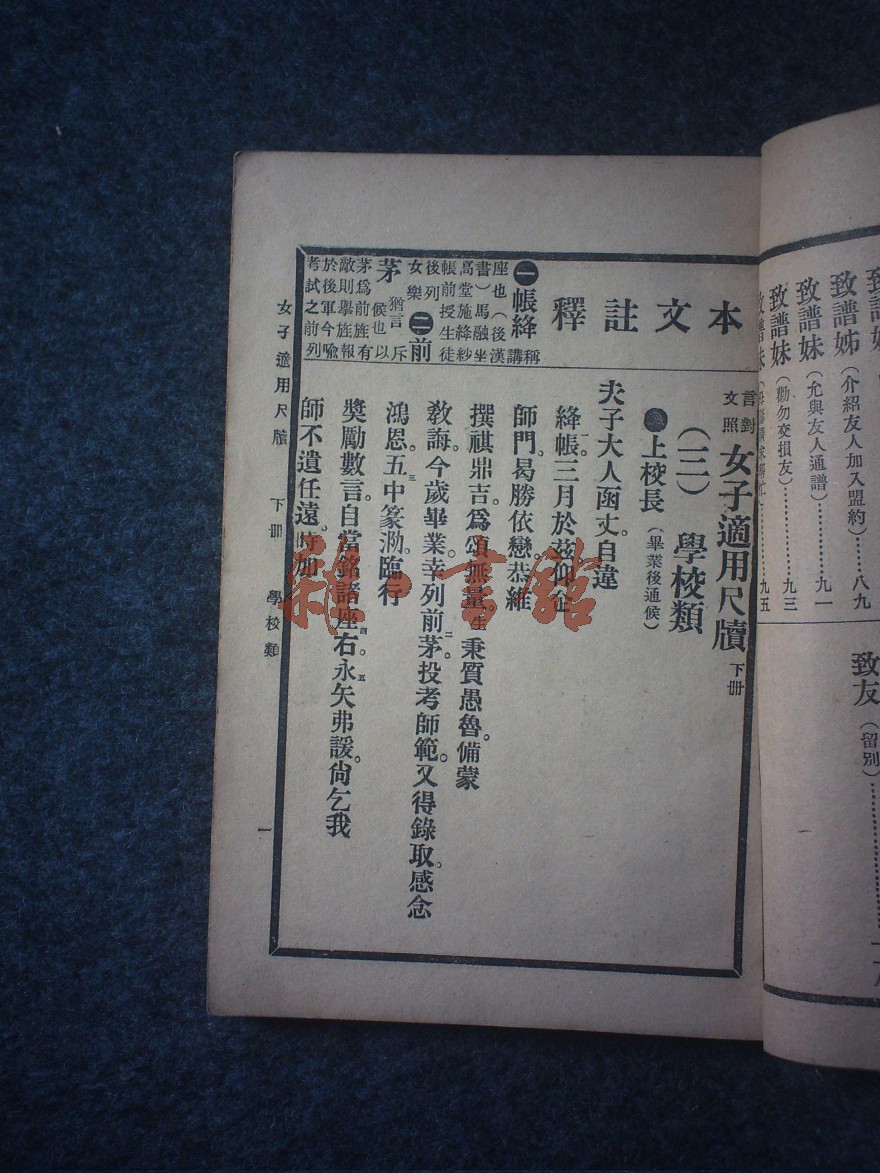 致譜姊（介紹友人加入盟約）……八九
致譜妹（允與友人通譜）……九一
致譜妹（勸勿交損友）……九三
致譜妹……九五
致友（留別）
一
本文註釋
㊀絳帳 稱講
座也（後漢
書）馬融坐
高堂施絳紗
帳前授生徒
後列女樂
㊁前茅 猶言斥
候也以
茅爲前旌有
敵則舉旌報
於後軍今喻
考試之前列
言文對照 女子適用尺牘 下册
（三） 學校類
上校長（畢業後通候）
夫子大人函丈。自違
絳帳。一三月於茲。仰企
師門。曷勝依戀。恭維
撰祺鼎吉。爲頌無量。生秉質愚魯。備蒙
教誨。今歲畢業。幸列前茅。二投考師範。又得錄取。感念
鴻恩。五中篆泐。三臨行
獎勵數言。自當銘諸座右。四永矢弗諼。五尙乞我
師不遺任遠。時加
女子適用尺牘 下册 學校類
一
雜·書館